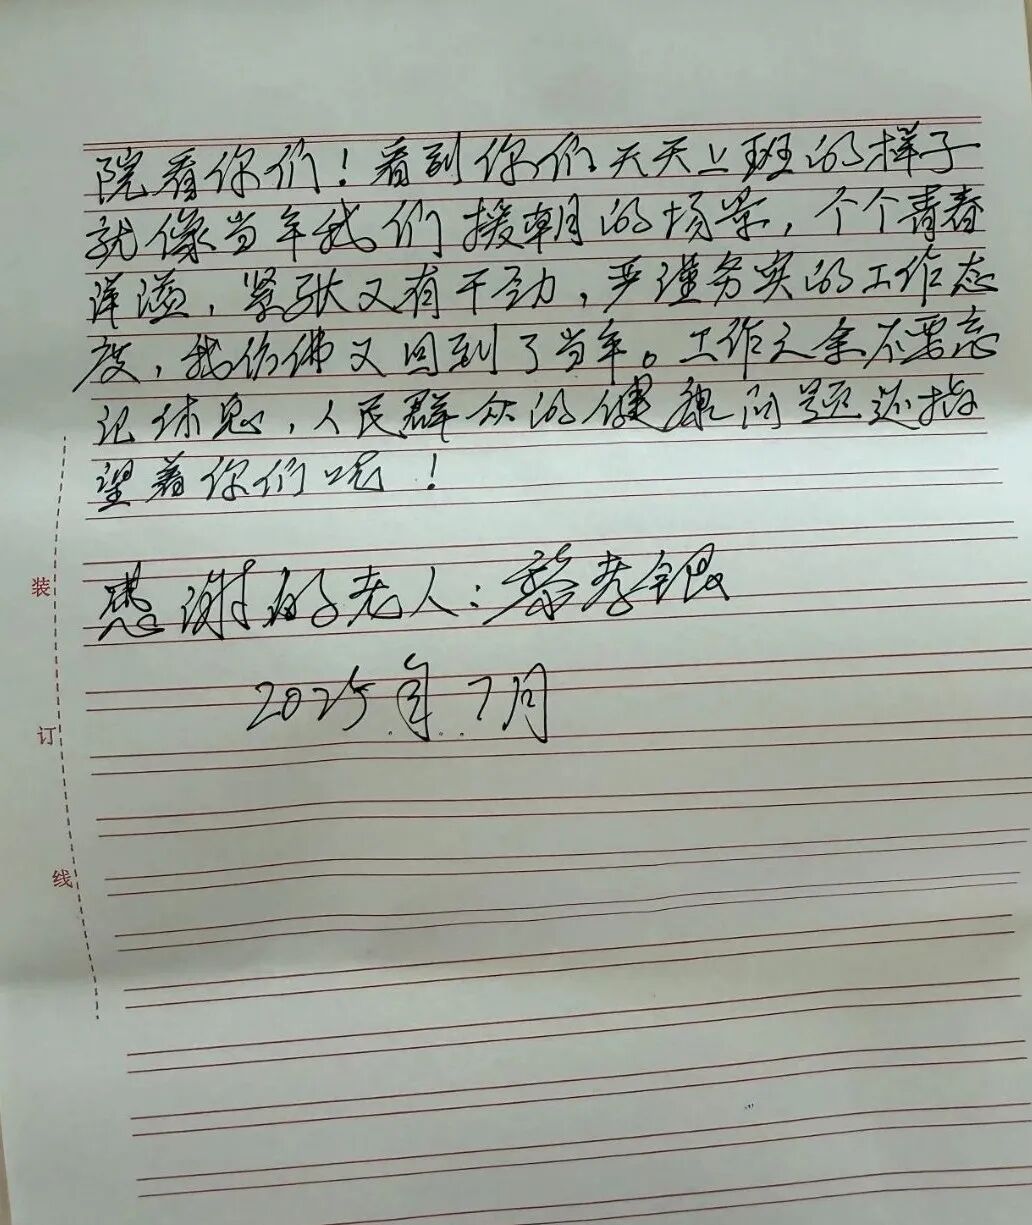 院看你们！看到你们天天上班的样子
就像当年我们援朝的场景，个个青春
洋溢，紧张又有干劲，严谨务实的工作态
度，我仿佛又回到了当年。工作之余不要忘
记休息，人民群众的健康问题还指
望着你们呢！
感谢的老人：黎孝银
2025年7月
装
订
线